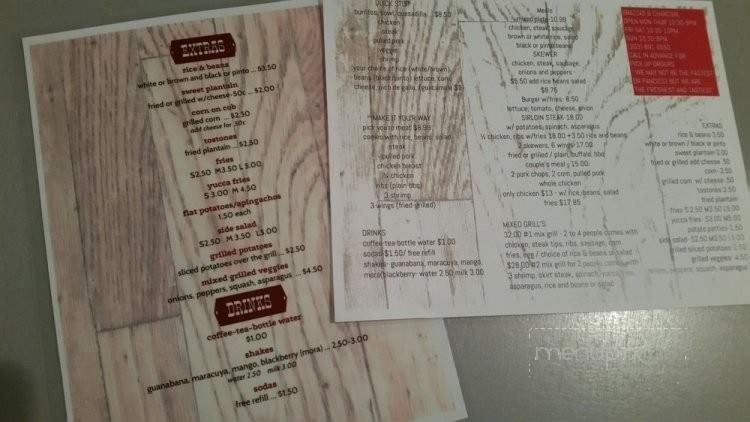 EXTRAS
rice & beans
white or brown and black or pinto ... $3.50
sweet plantain
fried or grilled w/cheese-50c ... $2.00
corn on cob
grilled corn ... $2.50
add cheese for .50c
tostones
fried plantain ... $2.50
fries
S2.50 M3.50 L5.00
yucca fries
S 3.00 M 4.50
flat potatoes/apingachos
1.50 each
side salad
S2.50 M 3.50 L5.00
grilled potatoes
sliced potatoes over the grill ... $2.50
mixed grilled veggies
onions, peppers, squash, asparagus ... $4.50
DRINKS
coffee-tea-bottle water
$1.00
shakes
guanabana, maracuya, mango, blackberry (mora) ... 2.50-3.00
water 2.50 milk 3.00
sodas
free refill ... $1.50
QUICK STOP
burritos, bowl, quesadilla ... $8.50
chicken
steak
pulled pork
veggie
shrimp
your choice of rice (white/brown)
beans (black/pinto) lettuce, corn,
cheese, pico de gallo, (guacamole
"MAKE IT YOUR WAY
pick your meat $8.99
comes with rice, beans, salad
steak
pulled pork
chicken breast
¼ chicken
ribs (plain/bbq)
3 shrimp
3 wings (fried/grilled)
DRINKS
coffee-tea-bottle water $1.00
sodas $1.50/ free refill
shakes- guanabana, maracuya, mango,
mora(blackberry- water 2.50 milk 3.00
Meals
mixed plate 10.99
chicken, steak, sausage,
brown or white rice, salad
black or pinto beans
SKEWER
chicken, steak, sausage,
onions and peppers
$5.50 add rice beans salad
$8.75
Burger w/fries- 8.50
lettuce, tomato, cheese, onion
SIRLOIN STEAK 18.00
w/ potatoes, spinach, asparagus
½ chicken, ribs w/fries 18.00 +3.50 rice and beans
2 skewers, 6 wings- 17.00
fried or grilled / plain, buffalo, bbq
couple's meal
15.00
2 pork chops, 2 corn, pulled pork
whole chicken
only chicken $13 - w/ rice, beans, salad
fries $17.95
MIXED GRILL'S
32.00 #1 mix grill - 2 to 4 people comes with
chicken, steak tips, ribs, sausage, corn
fries, egg / choice of rice & beans or salad
$28.00 #2 mix grill for 2 people, comes with
3 shrimp, skirt steak, spinach,
asparagus, rice and beans or salad
BRAZAS & CHARCOAL
OPEN MON-THUR 10:30-9PM
FRI SAT 10:30-10PM
SUN 10:30-8PM
CALL IN ADVANCE FOR
PICK UP ORDERS
WE MAY NOT BE THE FASTEST
OR FANCIEST BUT WE ARE
THE FRESHEST AND TASTIEST
EXTRAS
rice & beans 3.50
white or brown / black or pinto
sweet plantain 2.00
fried or grilled add cheese .50
corn- 2.50
grilled corn w/ cheese .50
tostones 2.50
fried plantain
fries S 2.50 M3.50 L5.00
yucca fries- S3.00 M
potato patties- 1.50
side salad- S2.50 M3.50 L5.00
grilled sliced potatoes- 2.50
grilled veggies- 4.50
peppers, squash, asparagus